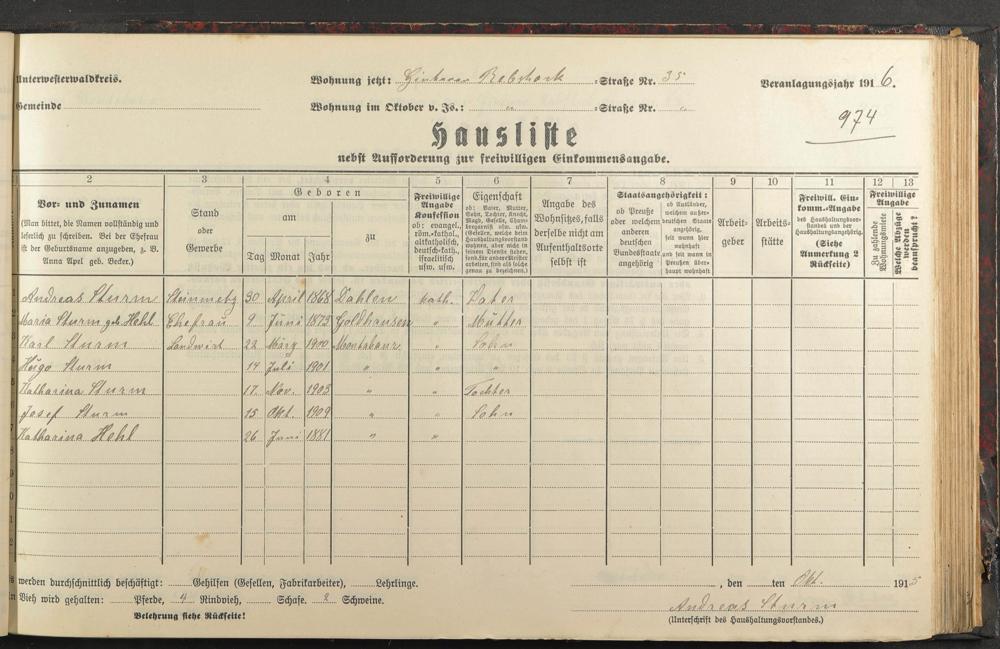 Unterwesterwaldkreis.
Wohnung jetzt: Hinterer Rebstock -Straße Nr. 35
Veranlagungsjahr 1916.
Gemeinde
Wohnung im Oktober v. Js.: " -Straße Nr. "
974
Hausliste
nebst Aufforderung zur freiwilligen Einkommensangabe.
2 3 4 5 6 7 8 9 10 11 12 13
Vor- und Zunamen
(Man bittet, die Namen vollständig und
leserlich zu schreiben. Bei der Ehefrau
ist der Geburtsname anzugeben, z. B.
Anna Apel geb. Becker.)
Stand
oder
Gewerbe
Geboren
am
zu
Tag Monat Jahr
Freiwillige
Angabe
Konfession
ob: evangel.,
röm.-kathol.,
altkatholisch,
deutsch-kath.,
israelitisch
usw. usw.
Eigenschaft
ob: Vater, Mutter,
Sohn, Tochter, Knecht,
Magd, Geselle, Cham-
bregarnist usw. usw.
(Gesellen, welche beim
Haushaltungsvorstand
wohnen, aber nicht in
seinem Dienste stehen,
sond. für andere Meister
arbeiten, sind als solche
genau zu bezeichnen.)
Angabe des
Wohnsitzes, falls
derselbe nicht am
Aufenthaltsorte
selbst ist
Staatsangehörigkeit:
ob Preuße
oder welchem
anderen
deutschen
Bundesstaate
angehörig
ob Ausländer,
welchem außer-
deutschen Staate
angehörig,
seit wann hier
wohnhaft
und seit wann in
Preußen über-
haupt wohnhaft
Arbeit-
geber
Arbeits-
stätte
Freiwill. Ein-
komm.-Angabe
des Haushaltungsvor-
standes und der
Haushaltungsangehörig.
(Siehe
Anmerkung 2
Rückseite)
Freiwillige
Angabe
Zu zahlende
Wohnungsmiete
Welche Abzüge
werden
beansprucht?
Andreas Sturm Steinmetz 30 April 1868 Dahlen kath. Vater
Maria Sturm geb. Hehl Ehefrau 9 Juni 1873 Goldhausen " Mutter
Karl Sturm Landwirt 22 März 1900 Montabaur " Sohn
Hugo Sturm 14 Juli 1901 " " "
Katharina Sturm 17 Nov. 1903 " " Tochter
Josef Sturm 15 Okt. 1909 " " Sohn
Katharina Hehl 26 Juni 1881 " "
werden durchschnittlich beschäftigt: Gehilfen (Gesellen, Fabrikarbeiter), Lehrlinge.
, den ten Okt. 1915
Vieh wird gehalten: Pferde, 4 Rindvieh, Schafe. 2 Schweine.
Andreas Sturm
Belehrung siehe Rückseite!
(Unterschrift des Haushaltungsvorstandes.)